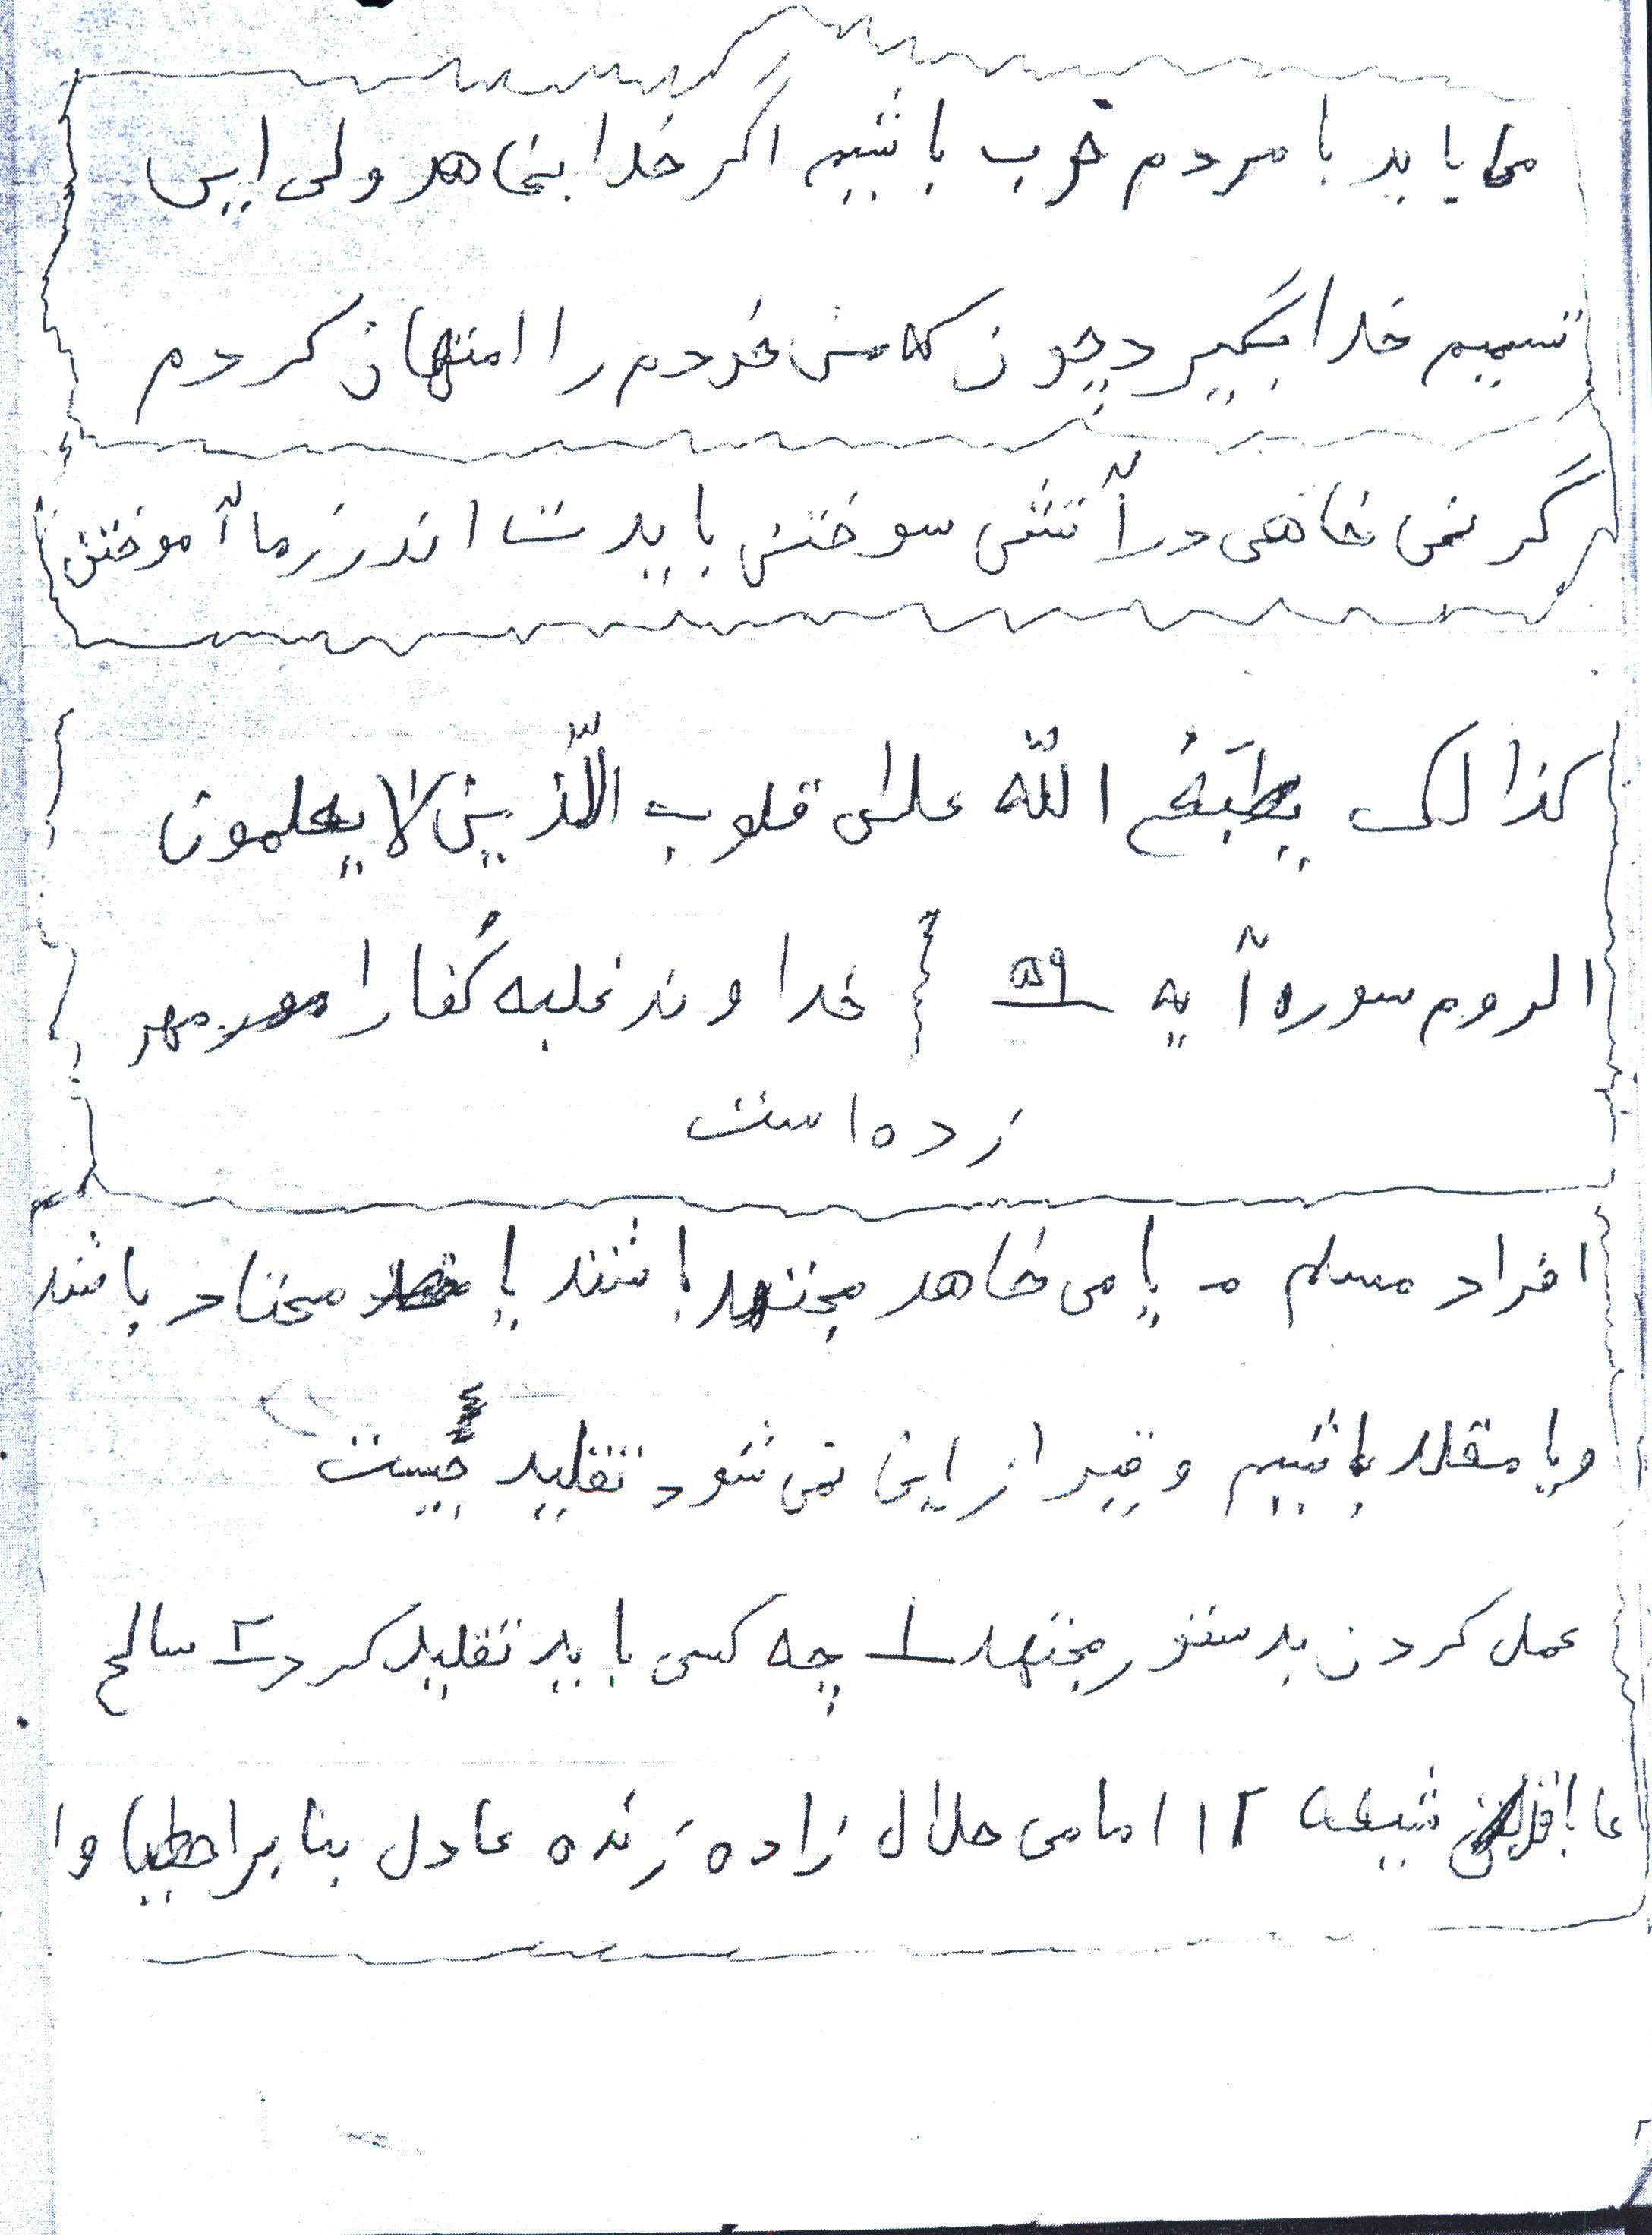 می یابد با مردم خوب باشیم اگر خدا بخاهد ولی این
تسمیم خدا بگیرد چون که من خودم را امتهان کردم
گر نمی خاهی در آتش سوختن بایدت اندر زما آموختن
کذالک یطبَعُ اللّه علی قلوب الّذین لا یعلمون
الروم سوره آیه ۵۹ خداوند غلبه کُفار را مهر
زده است
افراد مسلم یا می خاهد مجتهد باشند یا محتاد باشند
و یا مقلد باشیم و قیر از این نمی شود تقلید چیست
عمل کردن بدستور مجتهد ۱ چه کسی باید تقلید کرد ۲ سالح
شیعه ۱۲ امامی حلال زاده زنده عادل بنابر وا